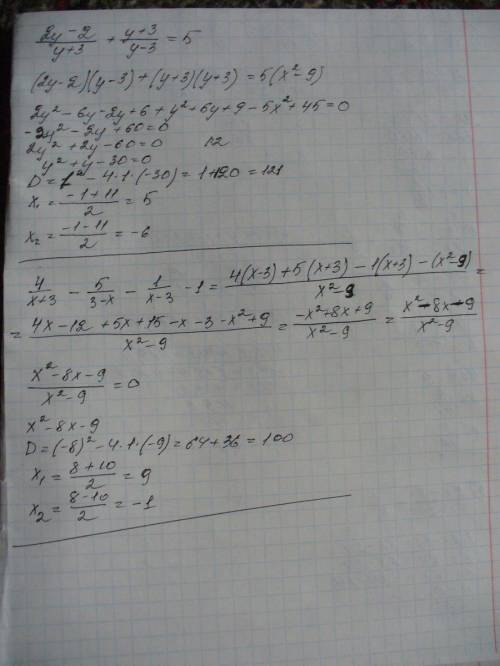 (2y-2)/(y+3) + (y+3)/(y-3) = 5
(2y-2)(y-3)+(y+3)(y+3) = 5(x²-9)
2y²-6y-2y+6+y²+6y+9-5x²+45=0
-2y²-2y+60=0
2y²+2y-60=0 :2
y²+y-30=0
D=1²-4·1·(-30)=1+120=121
x₁=(-1+11)/2=5
x₂=(-1-11)/2=-6
4/(x+3) - 5/(3-x) - 1/(x-3) - 1 = (4(x-3)+5(x+3)-1(x+3)-(x²-9))/(x²-9) =
= (4x-12+5x+15-x-3-x²+9)/(x²-9) = (-x²+8x+9)/(x²-9) = (x²-8x-9)/(x²-9)
(x²-8x-9)/(x²-9) = 0
x²-8x-9
D=(-8)²-4·1·(-9)=64+36=100
x₁=(8+10)/2=9
x₂=(8-10)/2=-1